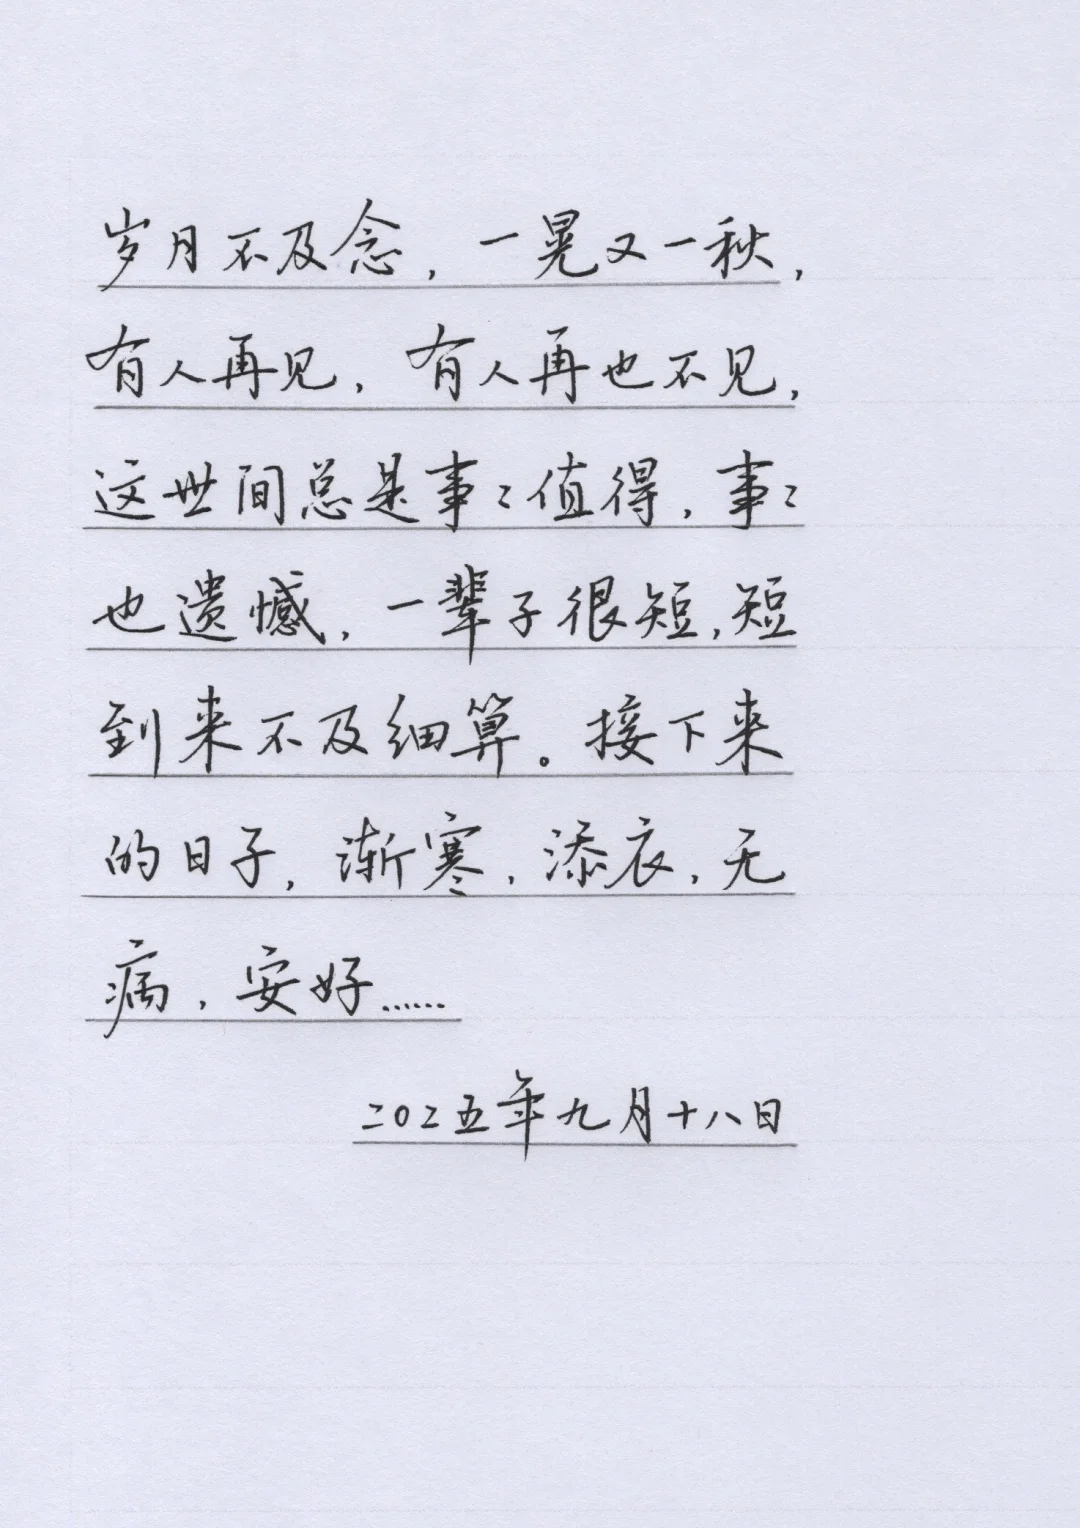 岁月不及念，一晃又一秋，
有人再见，有人再也不见，
这世间总是事〻值得，事〻
也遗憾，一辈子很短，短
到来不及细算。接下来
的日子，渐寒，添衣，无
病，安好……
二〇二五年九月十八日